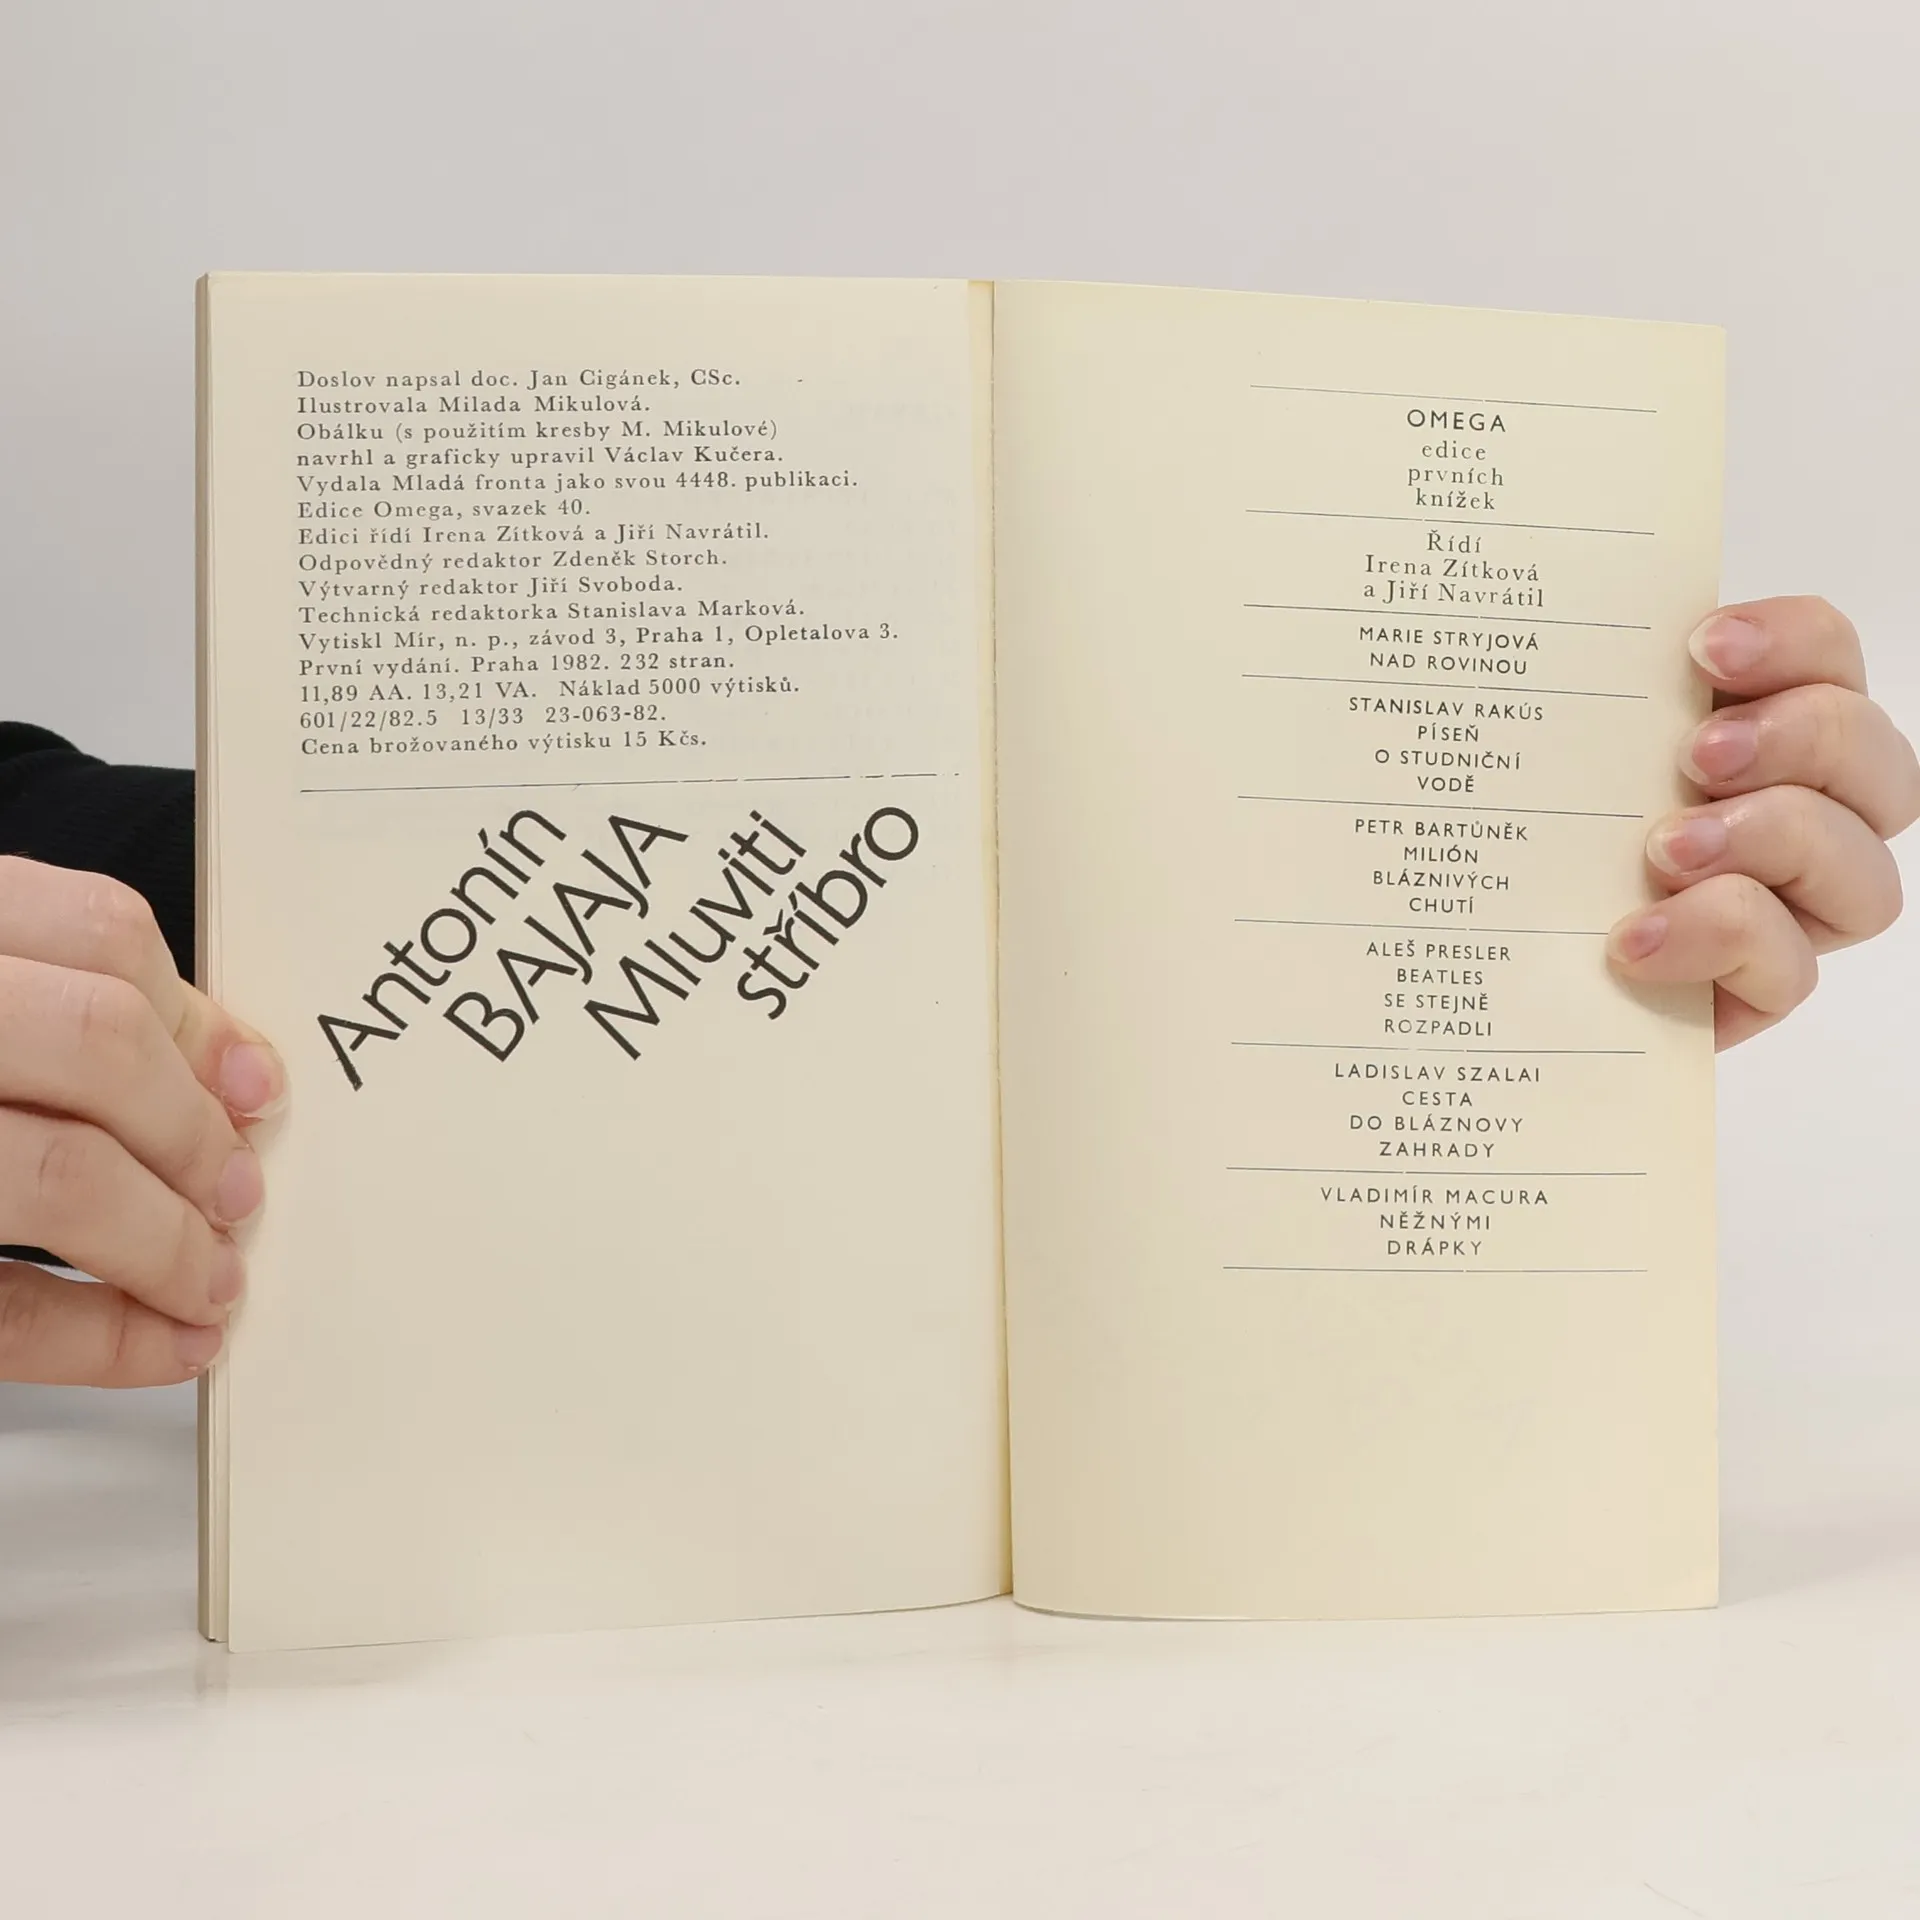 Doslov napsal doc. Jan Cigánek, CSc.
Ilustrovala Milada Mikulová.
Obálku (s použitím kresby M. Mikulové)
navrhl a graficky upravil Václav Kučera.
Vydala Mladá fronta jako svou 4448. publikaci.
Edice Omega, svazek 40.
Edici řídí Irena Zítková a Jiří Navrátil.
Odpovědný redaktor Zdeněk Storch.
Výtvarný redaktor Jiří Svoboda.
Technická redaktorka Stanislava Marková.
Vytiskl Mír, n. p., závod 3, Praha 1, Opletalova 3.
První vydání. Praha 1982. 232 stran.
11,89 AA. 13,21 VA. Náklad 5000 výtisků.
601/22/82.5 13/33 23-063-82.
Cena brožovaného výtisku 15 Kčs.
Antonín
BAJAJA
Mluviti
stříbro
OMEGA
edice
prvních
knížek
Řídí
Irena Zítková
a Jiří Navrátil
MARIE STRYJOVÁ
NAD ROVINOU
STANISLAV RAKÚS
PÍSEŇ
O STUDNIČNÍ
VODĚ
PETR BARTŮNĚK
MILIÓN
BLÁZNIVÝCH
CHUTÍ
ALEŠ PRESLER
BEATLES
SE STEJNĚ
ROZPADLI
LADISLAV SZALAI
CESTA
DO BLÁZNOVY
ZAHRADY
VLADIMÍR MACURA
NĚŽNÝMI
DRÁPKY